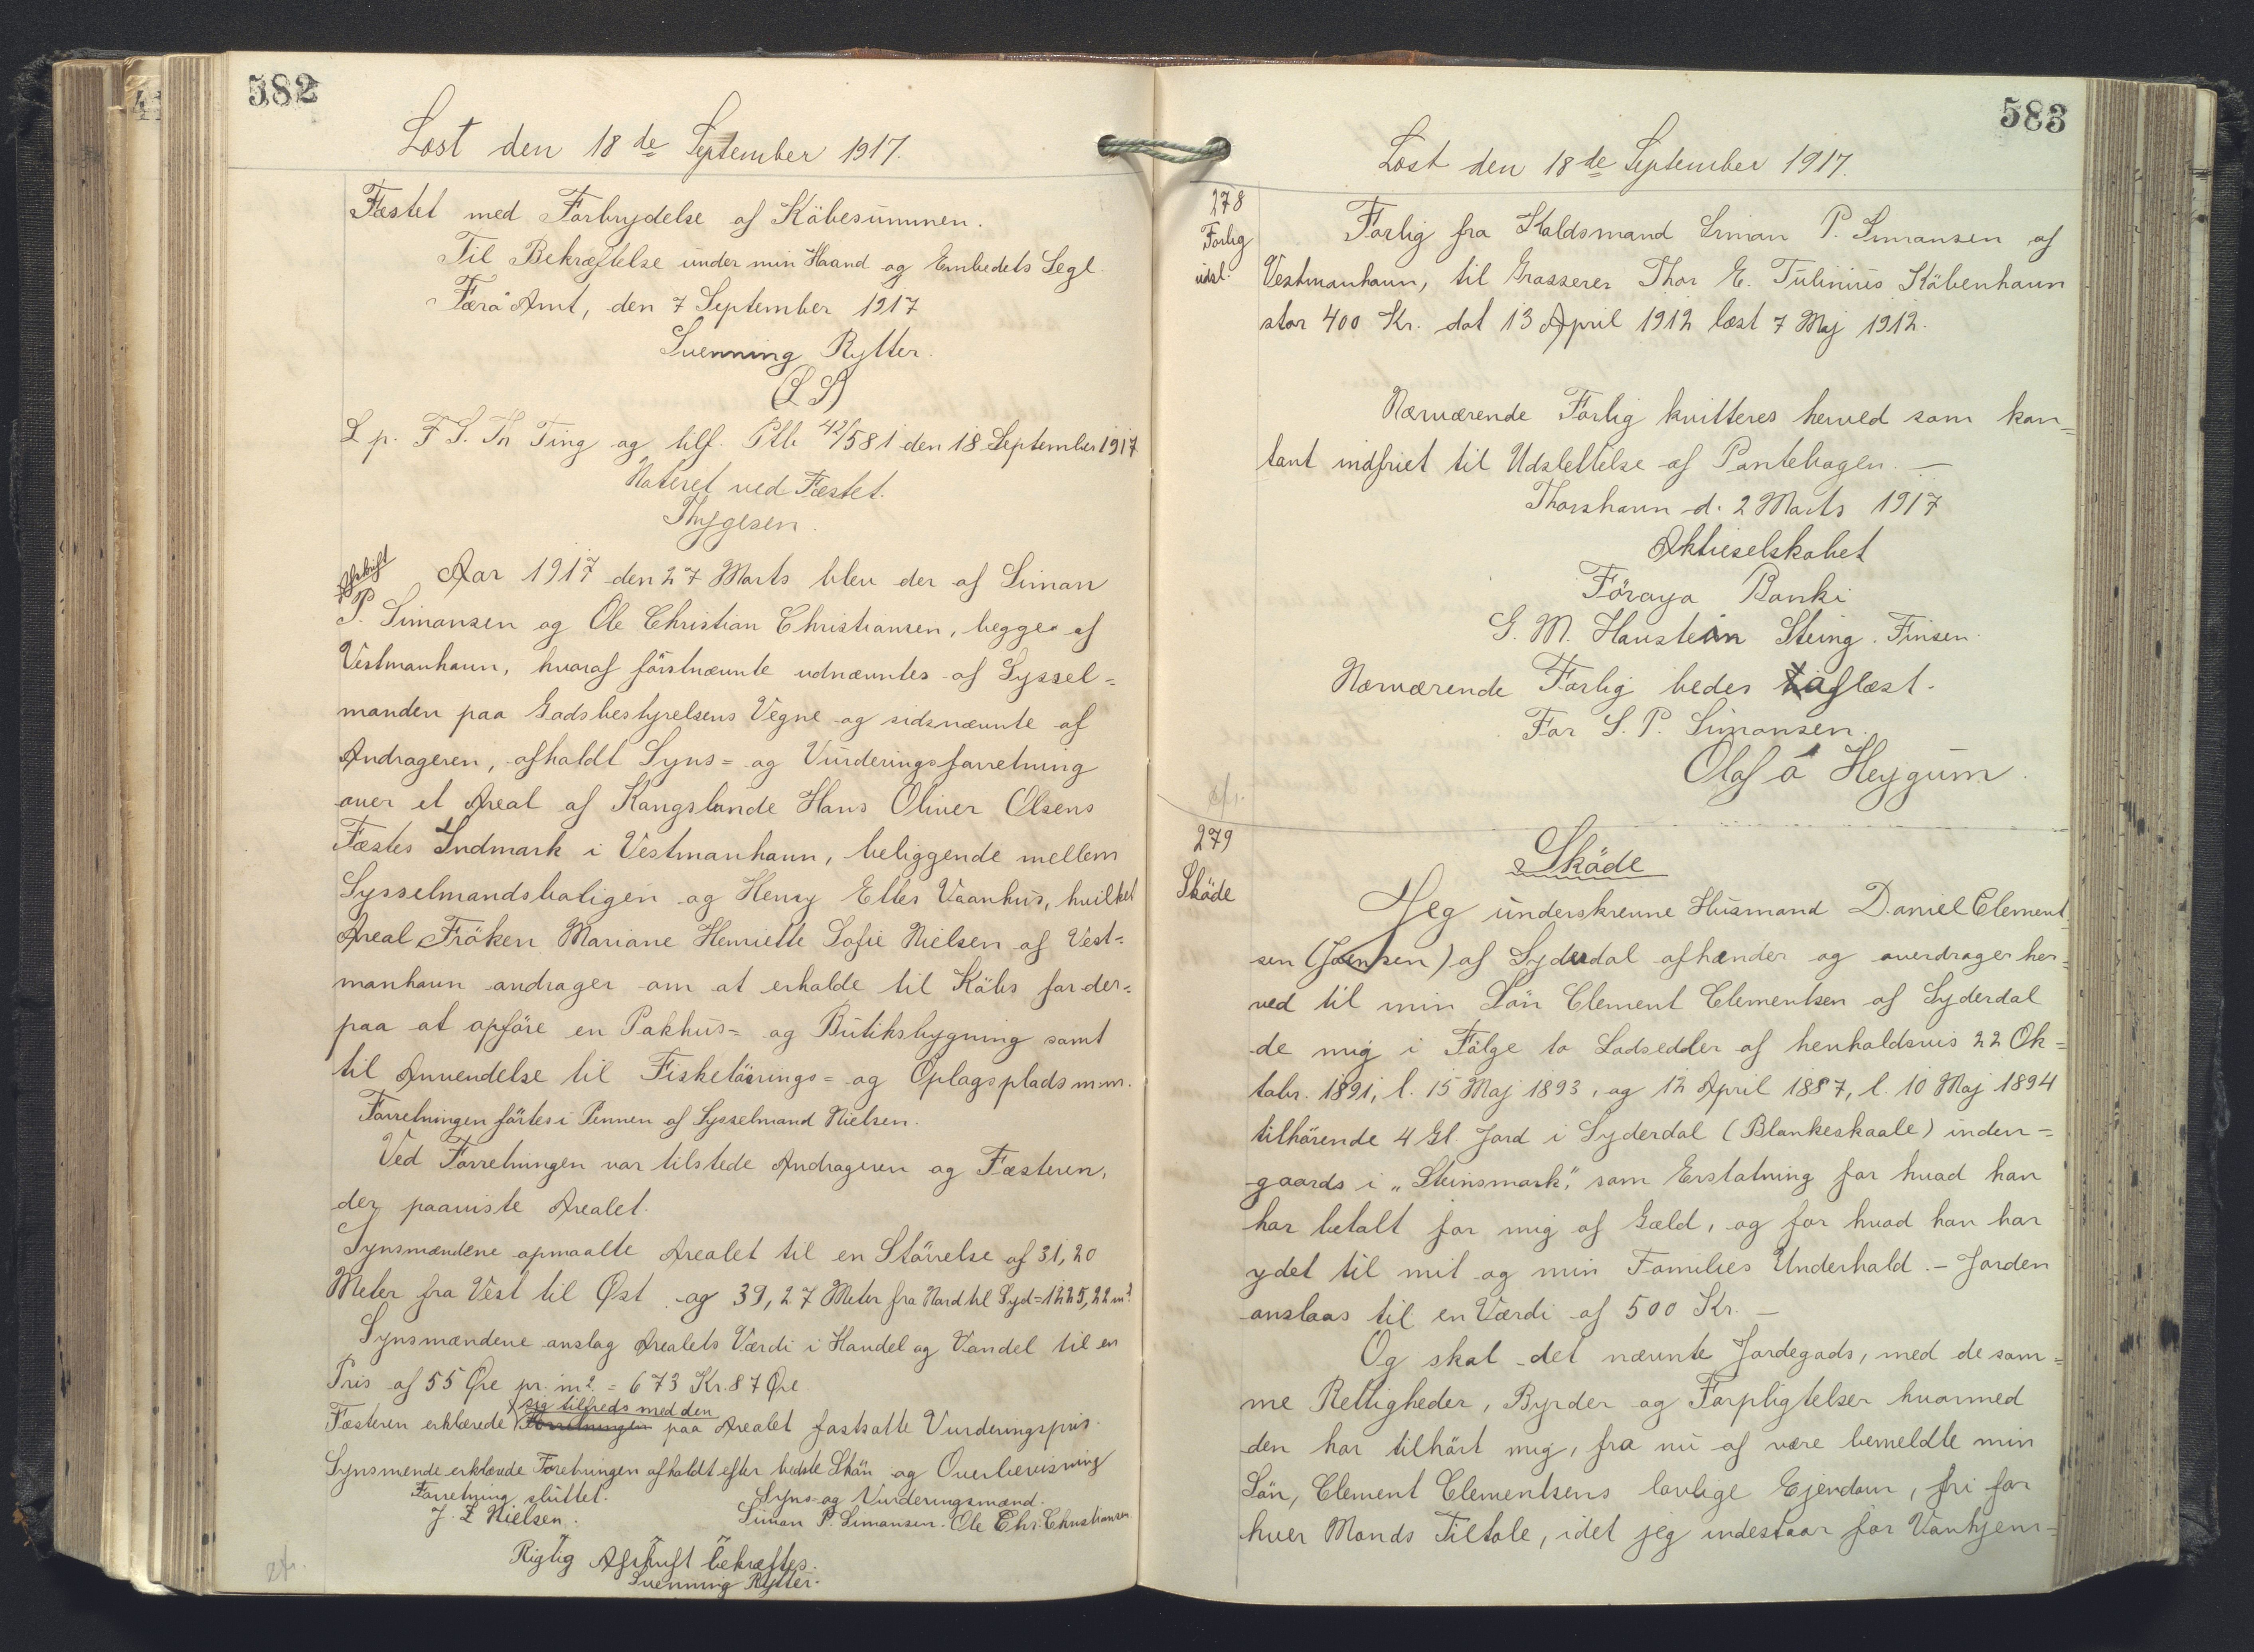 582
Læst den 18de September 1917.
Fæstet med Forbrydelse af Köbesummen.
Til Bekræftelse under min Haand og Embedets Segl.
Færö Amt, den 7 September 1917
Svenning Rytter.
(L S)
L p. F S. Th Ting og tilf. Ptb 42/581 den 18 September 1917
Noteret ved Fæstet.
Thygesen.
Afskrift
Aar 1917 den 27 Marts blev der af Simon
P. Simonsen og Ole Christian Christiansen, begge af
Vestmanhavn, hvoraf förstnævnte udnævntes af Syssel=
manden paa Godsbestyrelsens Vegne og sidsnævnte af
Andrageren, afholdt Syns= og Vurderingsforretning
over et Areal af Kongsbonde Hans Oliver Olsens
Fæstes Indmark i Vestmanhavn, beliggende mellem
Sysselmandsboligen og Henry Elles Vaanhus, hvilket
Areal Fröken Mariane Henriette Sofie Nielsen af Vest=
manhavn andrager om at erholde til Köbs for der=
paa at opföre en Pakhus= og Butiksbygning samt
til Anvendelse til Fisketörrings= og Oplagsplads m.m.
Forretningen förtes i Pennen af Sysselmand Nielsen.
Ved Forretningen var tilstede Andrageren og Fæsteren,
der paaviste Arealet.
Synsmændene opmaalte Arealet til en Störrelse af 31,20
Meter fra Vest til Øst og 39,27 Meter fra Nord til Syd=1225,22 m²
Synsmændene anslog Arealets Værdi i Handel og Vandel til en
Pris af 55 Øre pr. m². = 673 Kr. 87 Øre
sig tilfreds med den
Fæsteren erklærede Forretningen paa Arealet fastsatte Vurderingspris.
Synsmende erklærede Forretningen afholdt efter bedste Skön og Overbevisning
Forretning sluttet. Syns-og Vurderingsmænd.
J. Z Nielsen. Simon P. Simonsen. Ole Chr. Christiansen
Rigtig Afskrift bekræftes.
Svenning Rytter.
583
Læst den 18de September 1917.
278
Forlig
udsl.
Forlig fra Koldsmand Simon P. Simonsen af
Vestmanhavn, til Grosserer Thor E. Tulinius Köbenhavn
stor 400 Kr. dat 13 April 1912 læst 7 Maj 1912.
Nærværende Forlig kvitteres herved som kon=
tant indfriet til Udslettelse af Pantebogen. —
Thorshavn d. 2 Marts 1917
Aktieselskabet
Föroya Banki
G. M. Haustein Steing. Finsen.
Nærværende Forlig bedes aflæst.
For S. P. Simonsen.
Olaf á Heygum.
279
Sköde
Sköde
Jeg underskrevne Husmand Daniel Clement
sen (Joensen) af Syderdal afhænder og overdrager her=
ved til min Sön Clement Clementsen af Syderdal
de mig i Fölge to Lodsedler af henholdsvis 22 Ok=
tobr. 1891, l. 15 Maj 1893, og 12 April 1887, l. 10 Maj 1894
tilhörende 4 Gl. Jord i Syderdal (Blankeskaale) inden=
gaards i „Steinsmark", som Erstatning for hvad han
har betalt for mig af Gæld, og for hvad han har
ydet til mit og min Families Underhold. — Jorden
anslaas til en Værdi af 500 Kr. —
Og skal det nævnte Jordegods, med de sam=
me Rettigheder, Byrder og Forpligtelser hvormed
den har tilhört mig, fra nu af være bemeldte min
Sön, Clement Clementsens lovlige Ejendom, fri for
hver Mands Tiltale, idet jeg indestaar for Vanhjem=